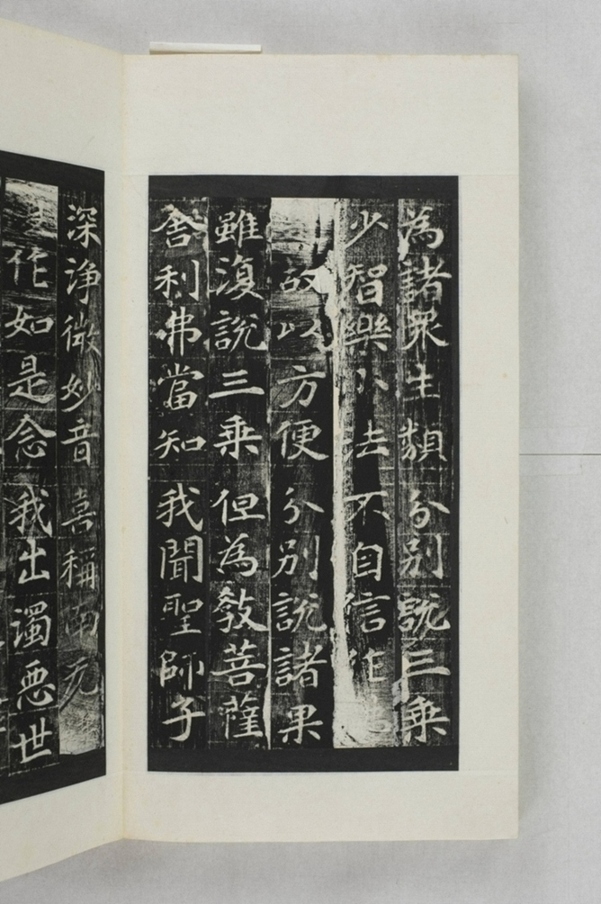 為諸眾生類 分別說三乘
少智樂小法 不自信作
故以方便 分別說諸果
雖復說三乘 但為教菩薩
舍利弗當知 我聞聖師子
深淨微妙音 喜稱南无
作如是念 我出濁惡世